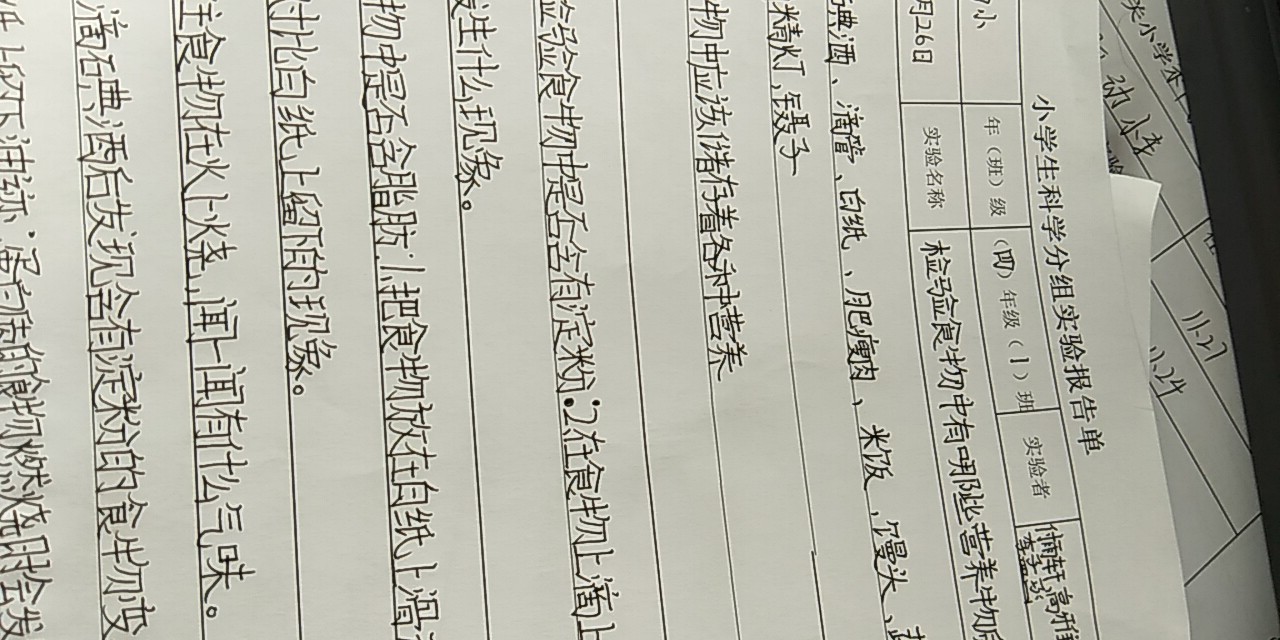 小学生科学分组实验报告单
小 年（班）级 （四）年级（1）班 实验者 高雅
月26日 实验名称 检验食物中有哪些营养物质
碘酒、滴管、白纸、肥瘦肉、米饭，馒头、
精灯，镊子
物中应该储存着各种营养
验食物中是否含有淀粉：2在食物上滴上
生什么现象。
物中是否含脂肪：1.把食物放在白纸上滑
对比白纸上留下的现象。
食物在火上烧，闻一闻有什么气味。
滴碘酒后发现含有淀粉的食物变
纸上留下油迹；蛋白质的食物燃烧时会发
11.27
11.24